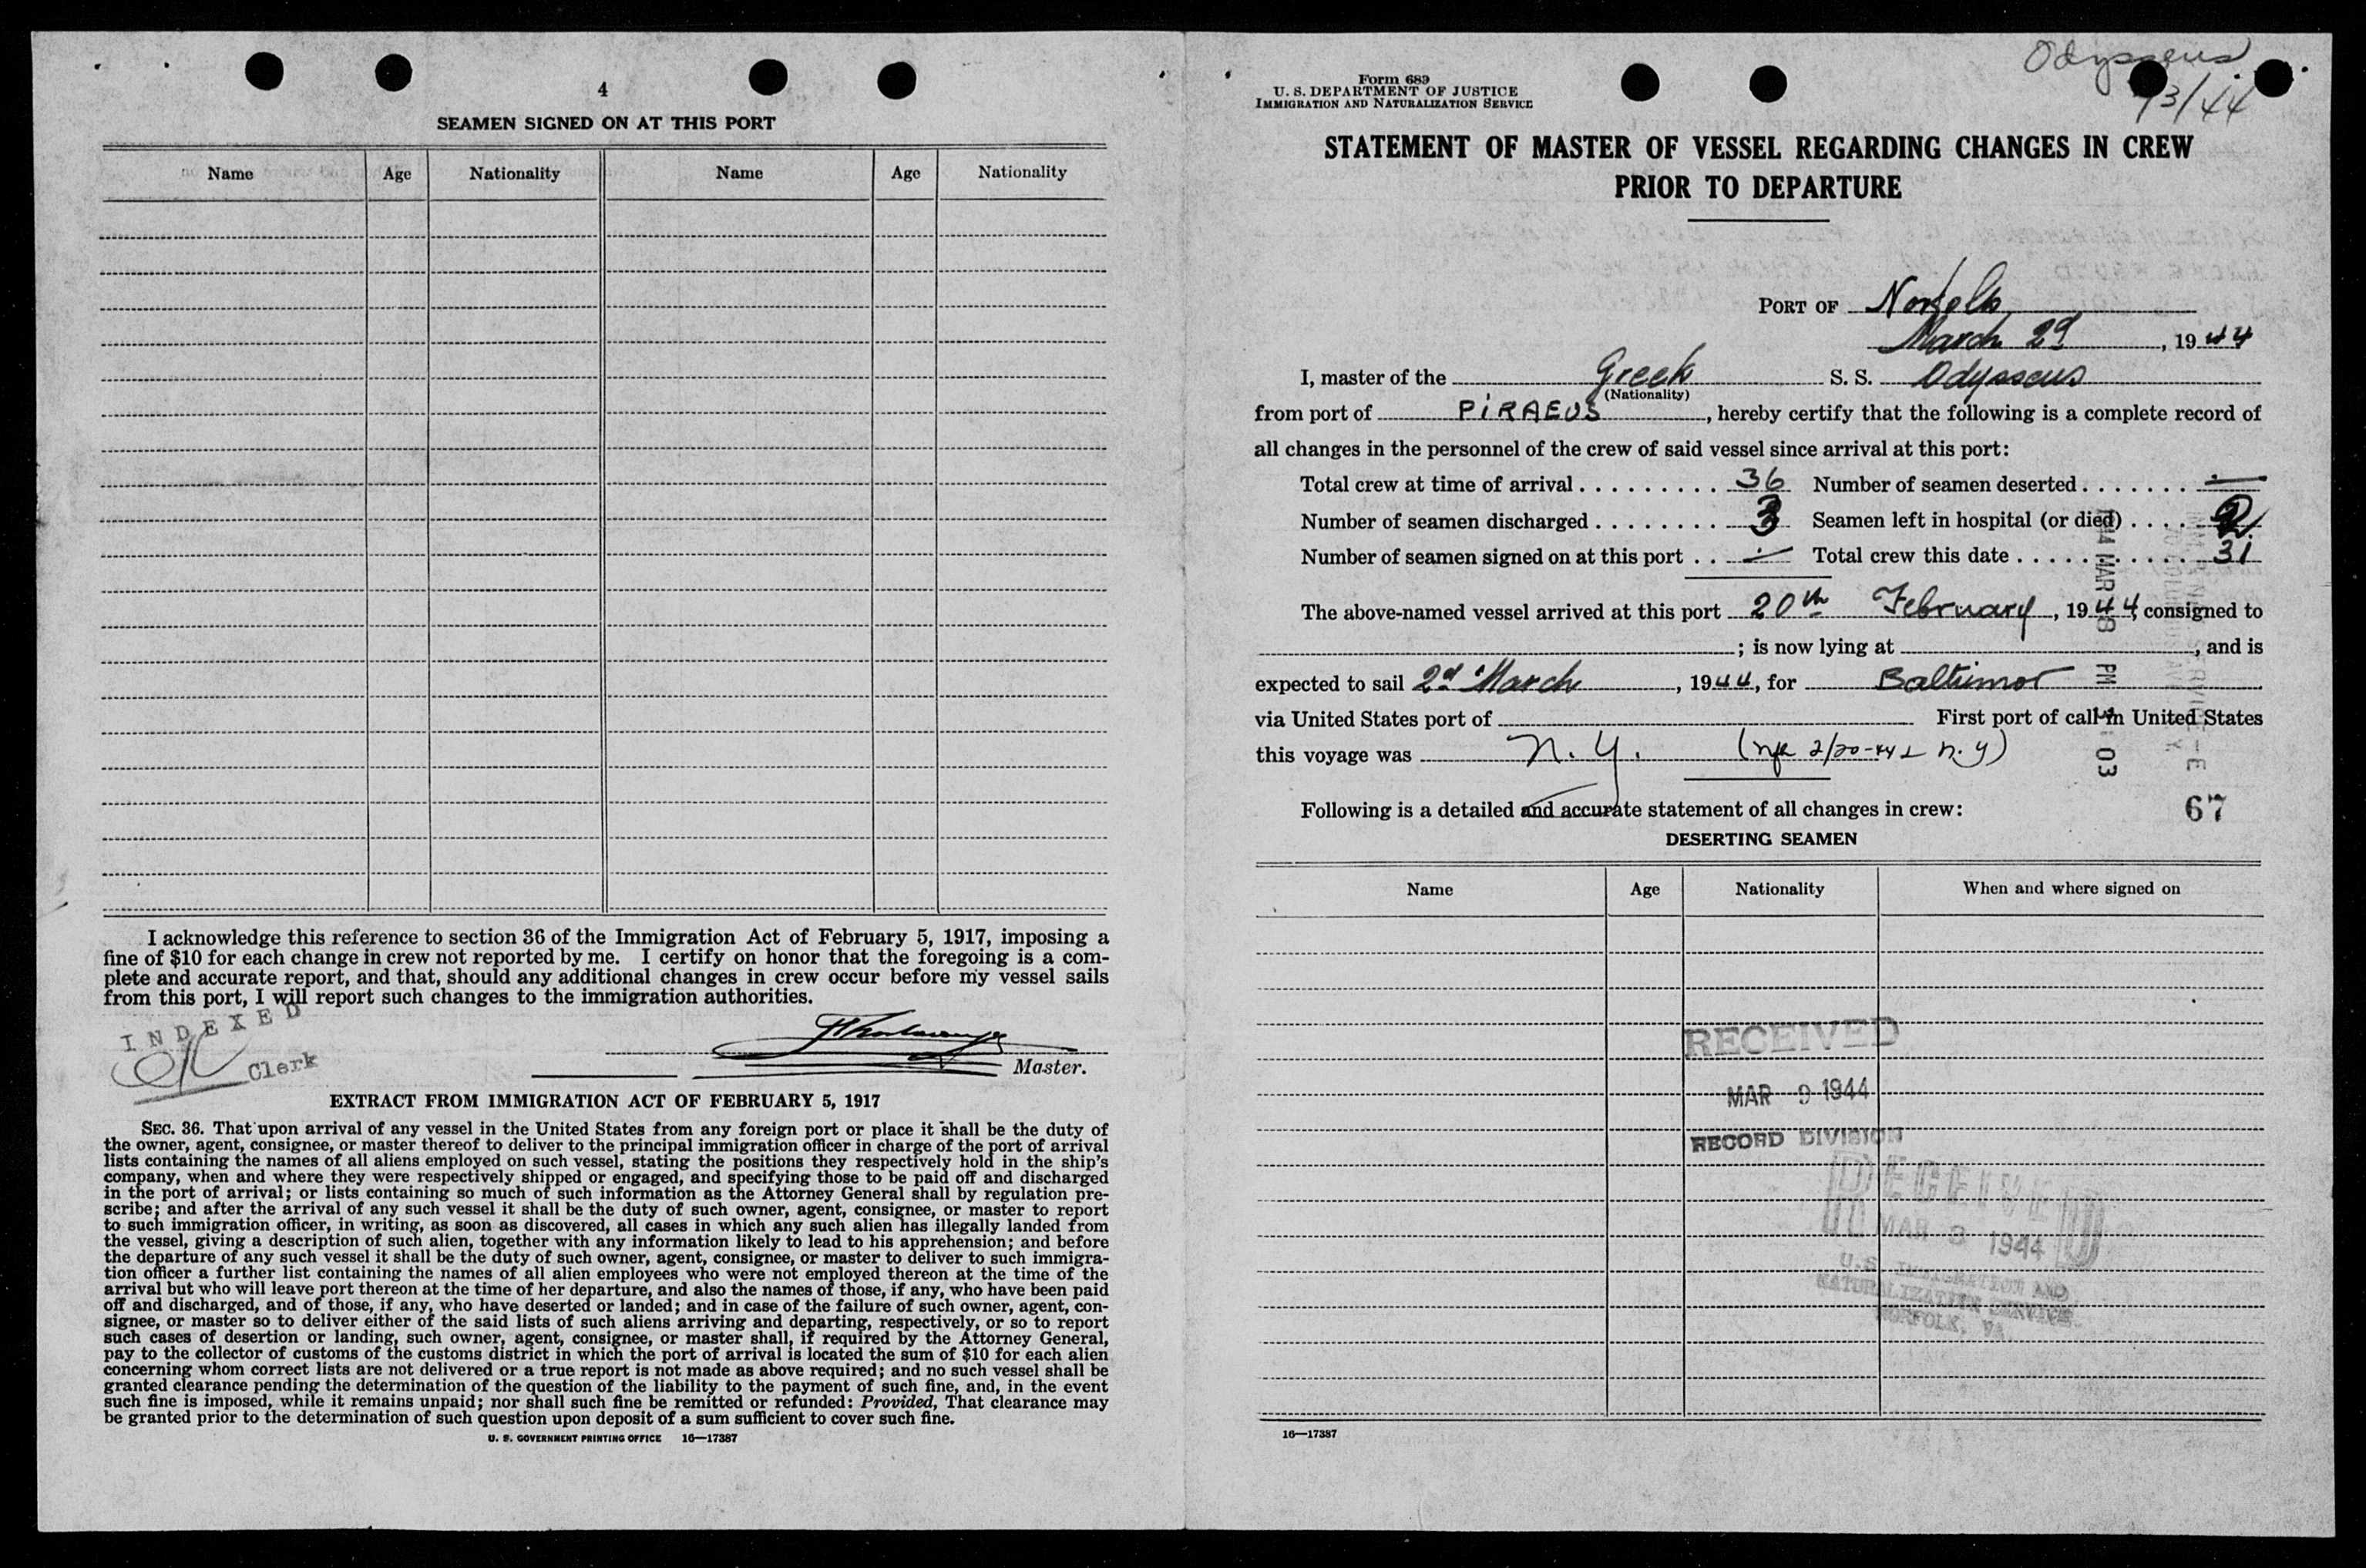 4
SEAMEN SIGNED ON AT THIS PORT
Name Age Nationality Name Age Nationality
I acknowledge this reference to section 36 of the Immigration Act of February 5, 1917, imposing a
fine of $10 for each change in crew not reported by me. I certify on honor that the foregoing is a com-
plete and accurate report, and that, should any additional changes in crew occur before my vessel sails
from this port, I will report such changes to the immigration authorities.
INDEXED
Clerk
Master.
EXTRACT FROM IMMIGRATION ACT OF FEBRUARY 5, 1917
SEC. 36. That upon arrival of any vessel in the United States from any foreign port or place it shall be the duty of
the owner, agent, consignee, or master thereof to deliver to the principal immigration officer in charge of the port of arrival
lists containing the names of all aliens employed on such vessel, stating the positions they respectively hold in the ship's
company, when and where they were respectively shipped or engaged, and specifying those to be paid off and discharged
in the port of arrival; or lists containing so much of such information as the Attorney General shall by regulation pre-
scribe; and after the arrival of any such vessel it shall be the duty of such owner, agent, consignee, or master to report
to such immigration officer, in writing, as soon as discovered, all cases in which any such alien has illegally landed from
the vessel, giving a description of such alien, together with any information likely to lead to his apprehension; and before
the departure of any such vessel it shall be the duty of such owner, agent, consignee, or master to deliver to such immigra-
tion officer a further list containing the names of all alien employees who were not employed thereon at the time of the
arrival but who will leave port thereon at the time of her departure, and also the names of those, if any, who have been paid
off and discharged, and of those, if any, who have deserted or landed; and in case of the failure of such owner, agent, con-
signee, or master so to deliver either of the said lists of such aliens arriving and departing, respectively, or so to report
such cases of desertion or landing, such owner, agent, consignee, or master shall, if required by the Attorney General,
pay to the collector of customs of the customs district in which the port of arrival is located the sum of $10 for each alien
concerning whom correct lists are not delivered or a true report is not made as above required; and no such vessel shall be
granted clearance pending the determination of the question of the liability to the payment of such fine, and, in the event
such fine is imposed, while it remains unpaid; nor shall such fine be remitted or refunded: Provided, That clearance may
be granted prior to the determination of such question upon deposit of a sum sufficient to cover such fine.
U. S. GOVERNMENT PRINTING OFFICE 16—17387
Odysseus
3/44
Form 689
U. S. DEPARTMENT OF JUSTICE
IMMIGRATION AND NATURALIZATION SERVICE
STATEMENT OF MASTER OF VESSEL REGARDING CHANGES IN CREW
PRIOR TO DEPARTURE
PORT OF Norfolk
March 2d, 1944
I, master of the Greek S. S. Odysseus
(Nationality)
from port of PIRAEUS, hereby certify that the following is a complete record of
all changes in the personnel of the crew of said vessel since arrival at this port:
Total crew at time of arrival . . . . . . . . . 36 Number of seamen deserted . . . . . . . —
Number of seamen discharged . . . . . . . . 3 Seamen left in hospital (or died) . . . . 2
Number of seamen signed on at this port . . — Total crew this date . . . . . . . . . . . 31
The above-named vessel arrived at this port 20th February, 1944, consigned to
; is now lying at , and is
expected to sail 2d March, 1944, for Baltimor
via United States port of First port of call in United States
this voyage was N. Y. (nfk 2/20-44 N. Y)
1944 MAR 8 PM 4 03
67
Following is a detailed and accurate statement of all changes in crew:
DESERTING SEAMEN
Name Age Nationality When and where signed on
RECEIVED
MAR 9 1944
RECORD DIVISION
RECEIVED
MAR 8 1944
U.S. IMMIGRATION AND
NATURALIZATION SERVICE
NORFOLK, VA.
16—17387